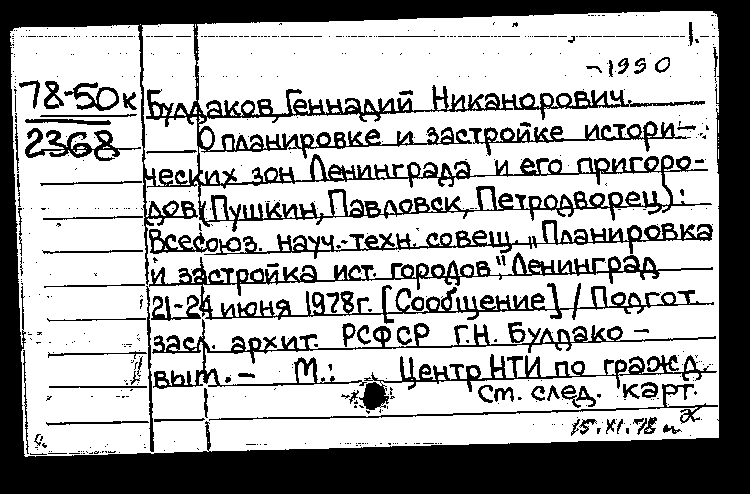 1.
-1990
78-50к Булдаков, Геннадий Никанорович.
2368 О планировке и застройке истори-
ческих зон Ленинграда и его пригоро-
дов (Пушкин, Павловск, Петродворец):
Всесоюз. науч.-техн. совещ. „Планировка
и застройка ист. городов", Ленинград
21-24 июня 1978г. [Сообщение] / Подгот.
засл. архит. РСФСР Г.Н. Булдако-
вым. - М.: Центр НТИ по гражд.
Ст. след. карт.
15.XI.78